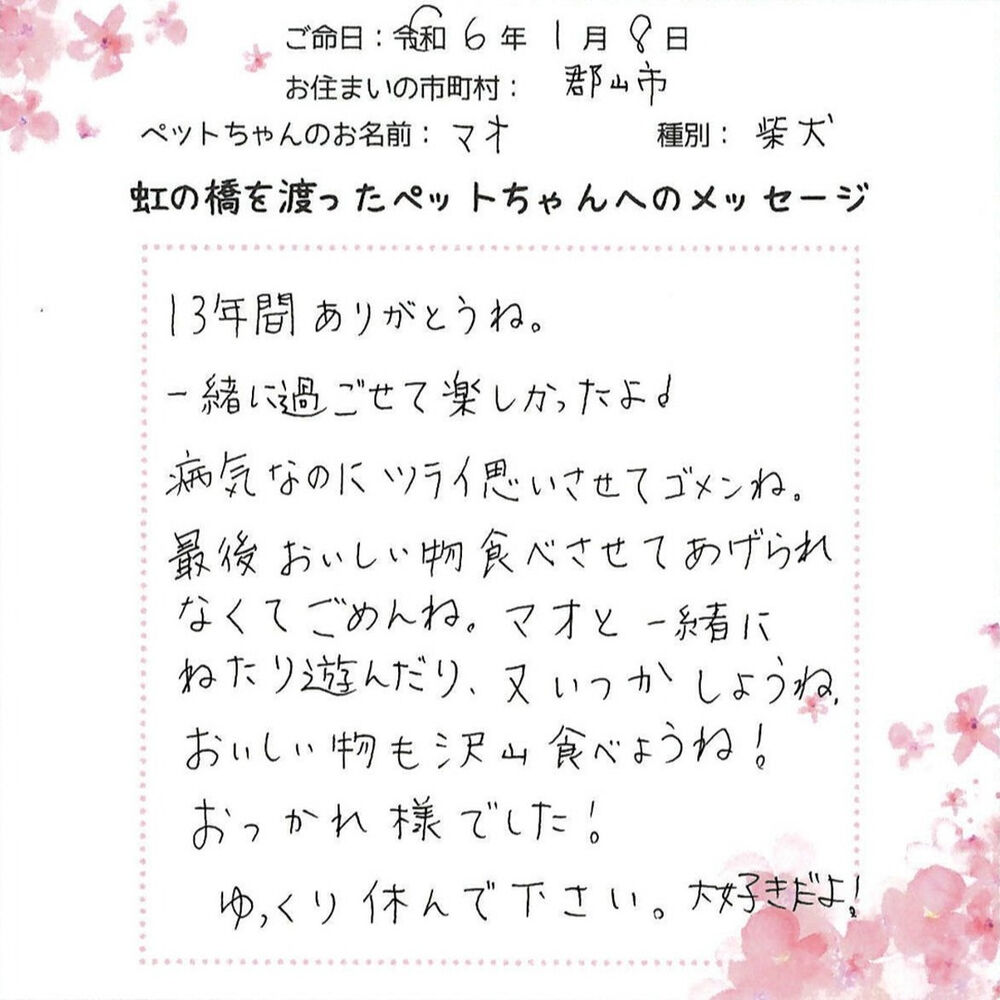 ご命日：令和 6 年 1 月 8 日
お住まいの市町村： 郡山市
ペットちゃんのお名前： マオ 種別： 柴犬
虹の橋を渡ったペットちゃんへのメッセージ
13年間ありがとうね。
一緒に過ごせて楽しかったよ♪
病気なのにツライ思いさせてゴメンね。
最後おいしい物食べさせてあげられ
なくてごめんね。マオと一緒に
ねたり遊んだり、又いつかしようね、
おいしい物も沢山食べようね！
おっかれ様でした！
ゆっくり休んで下さい。大好きだよ！